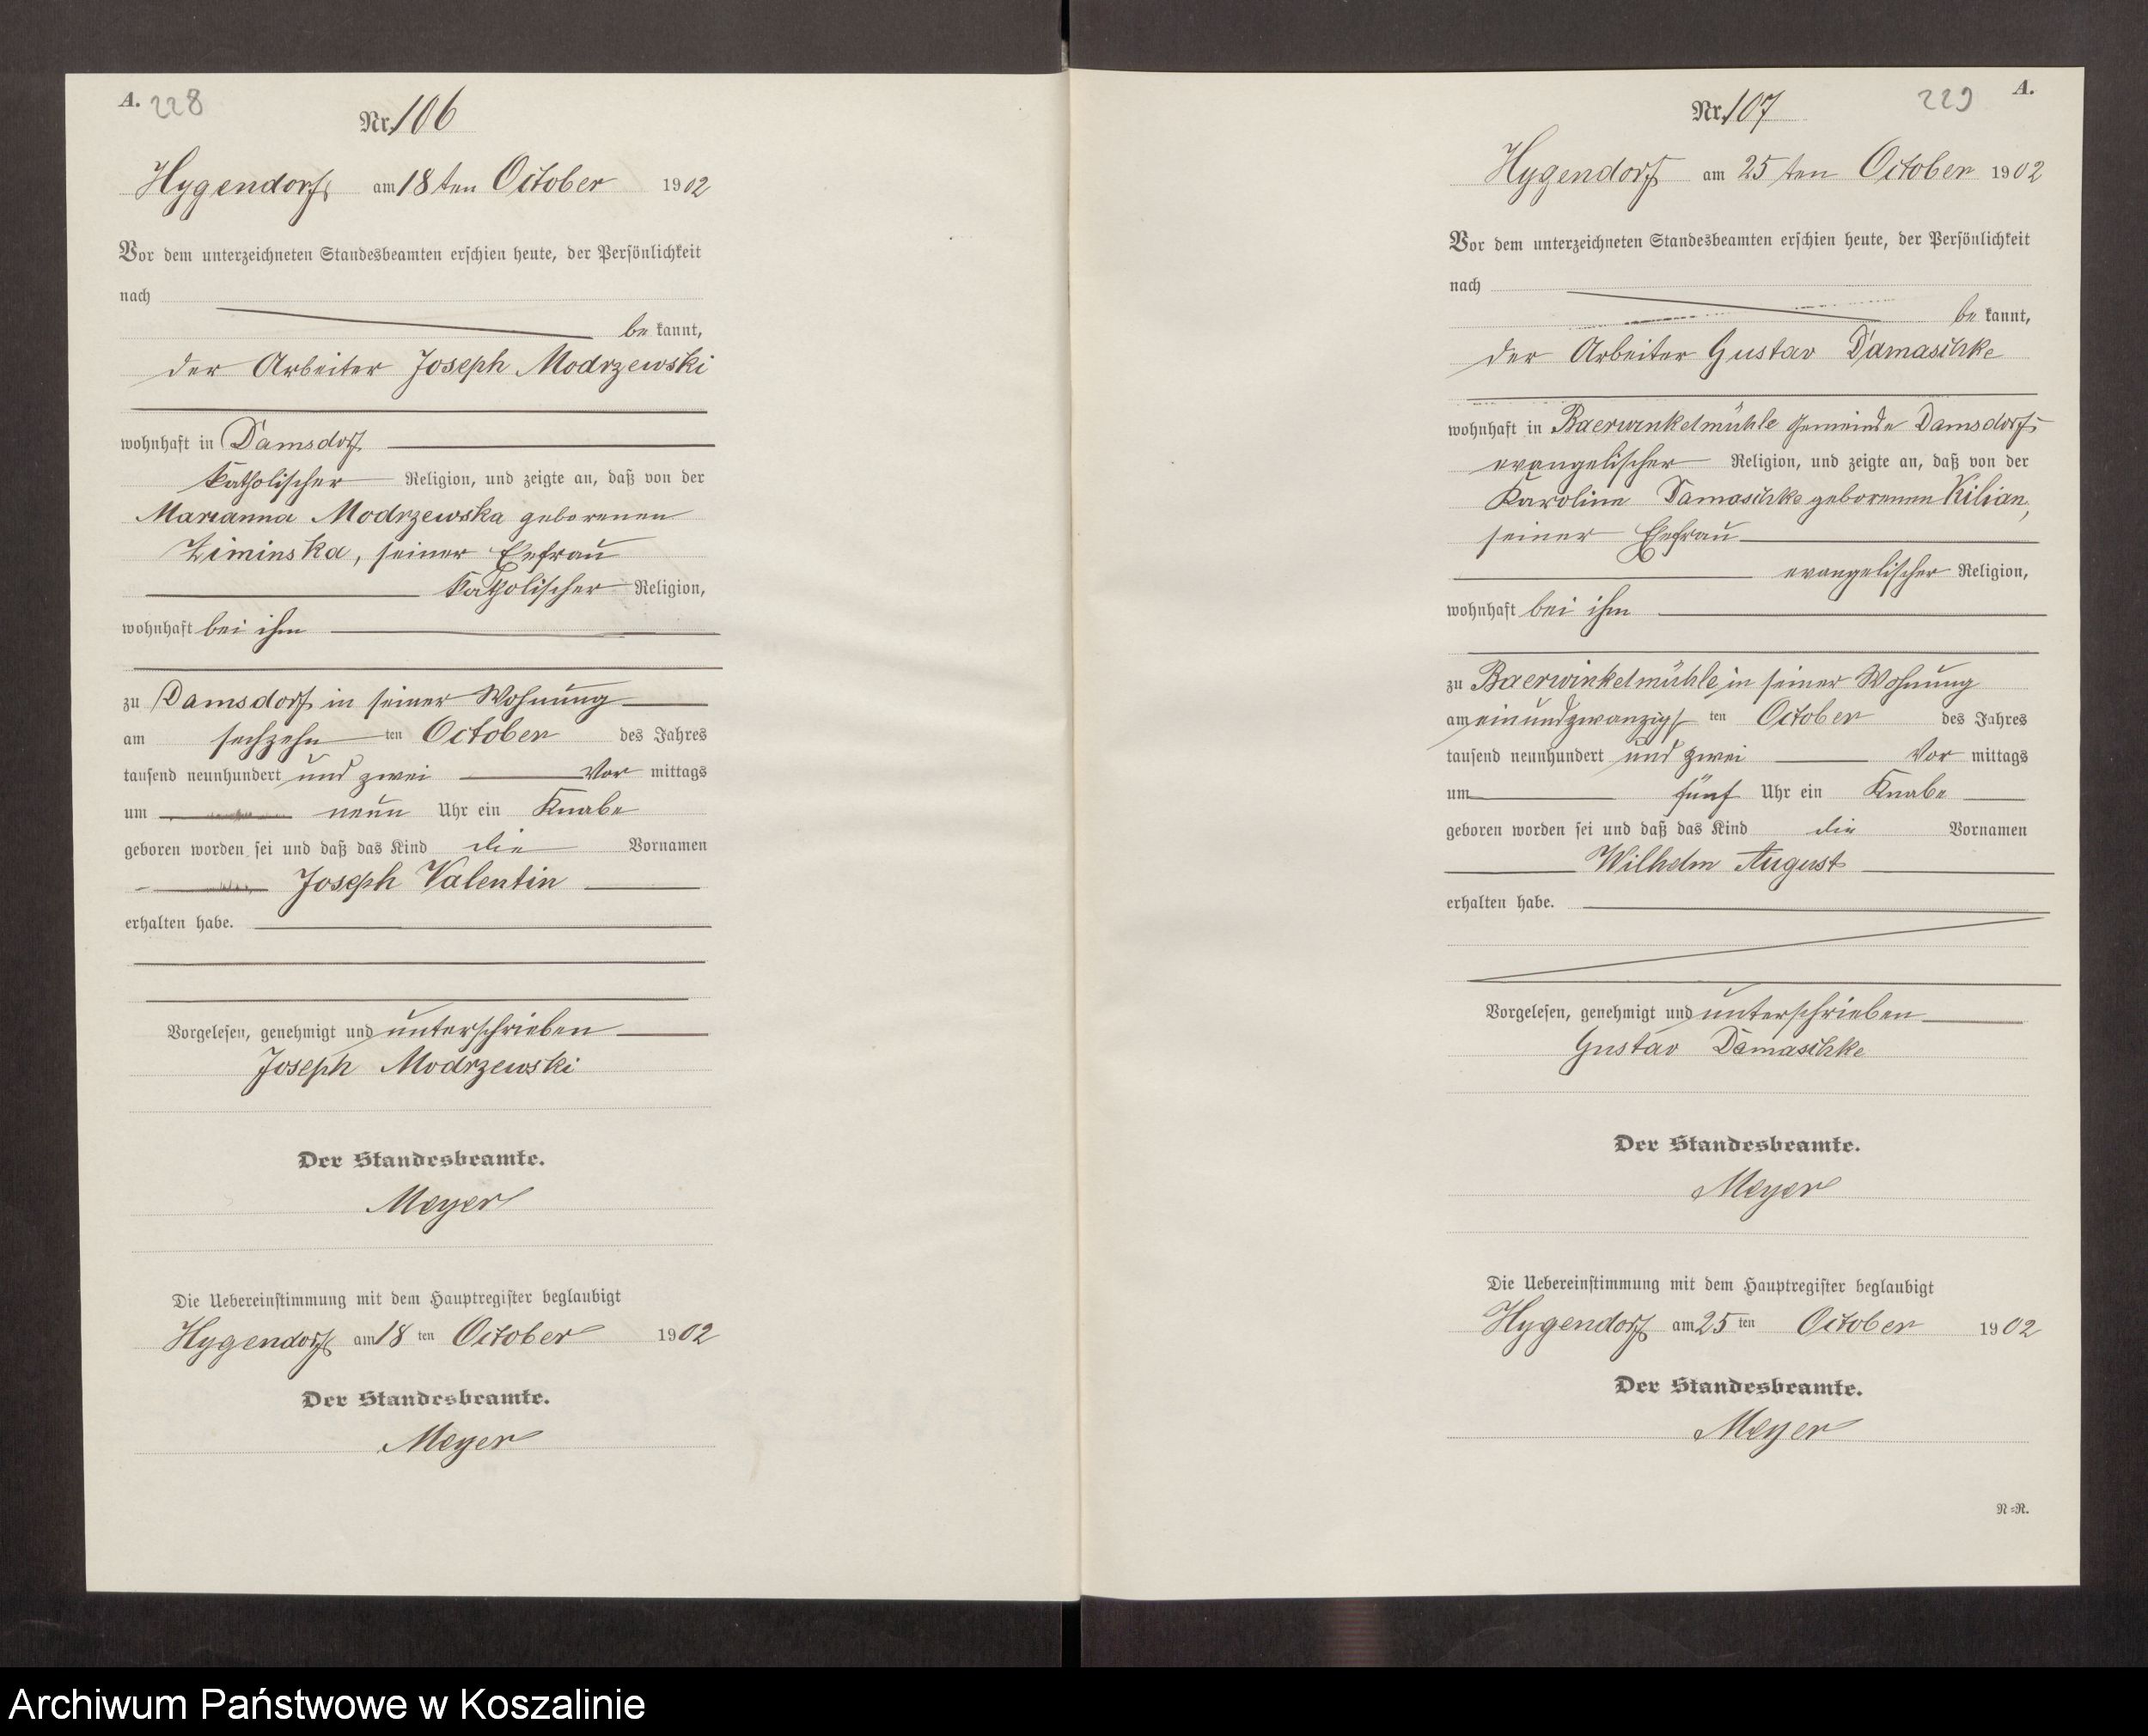 A. 228
Nr. 106
Hygendorf am 18ten October 1902
Vor dem unterzeichneten Standesbeamten erschien heute, der Persönlichkeit
nach
be kannt,
der Arbeiter Joseph Modrzewski
wohnhaft in Damsdorf
katholischer Religion, und zeigte an, daß von der
Marianna Modrzewska geborenen
Ziminska, seiner Ehefrau
katholischer Religion,
wohnhaft bei ihm
zu Damsdorf in seiner Wohnung
am sechzehn ten October des Jahres
tausend neunhundert und zwei Vor mittags
um neun Uhr ein Knabe
geboren worden sei und daß das Kind die Vornamen
Joseph Valentin
erhalten habe.
Vorgelesen, genehmigt und unterschrieben
Joseph Modrzewski
Der Standesbeamte.
Meyer
Die Uebereinstimmung mit dem Hauptregister beglaubigt
Hygendorf am 18 ten October 1902
Der Standesbeamte.
Meyer
229 A.
Nr. 107
Hygendorf am 25 ten October 1902
Vor dem unterzeichneten Standesbeamten erschien heute, der Persönlichkeit
nach
be kannt,
der Arbeiter Gustav Damaschke
wohnhaft in Baerwinkelmühle Gemeinde Damsdorf
evangelischer Religion, und zeigte an, daß von der
Karoline Damaschke geborenen Kilian,
seiner Ehefrau
evangelischer Religion,
wohnhaft bei ihm
zu Baerwinkelmühle in seiner Wohnung
am einundzwanzigs ten October des Jahres
tausend neunhundert und zwei Vor mittags
um fünf Uhr ein Knabe
geboren worden sei und daß das Kind die Vornamen
Wilhelm August
erhalten habe.
Vorgelesen, genehmigt und unterschrieben
Gustav Damaschke
Der Standesbeamte.
Meyer
Die Uebereinstimmung mit dem Hauptregister beglaubigt
Hygendorf am 25 ten October 1902
Der Standesbeamte.
Meyer
N=R.
Archiwum Państwowe w Koszalinie